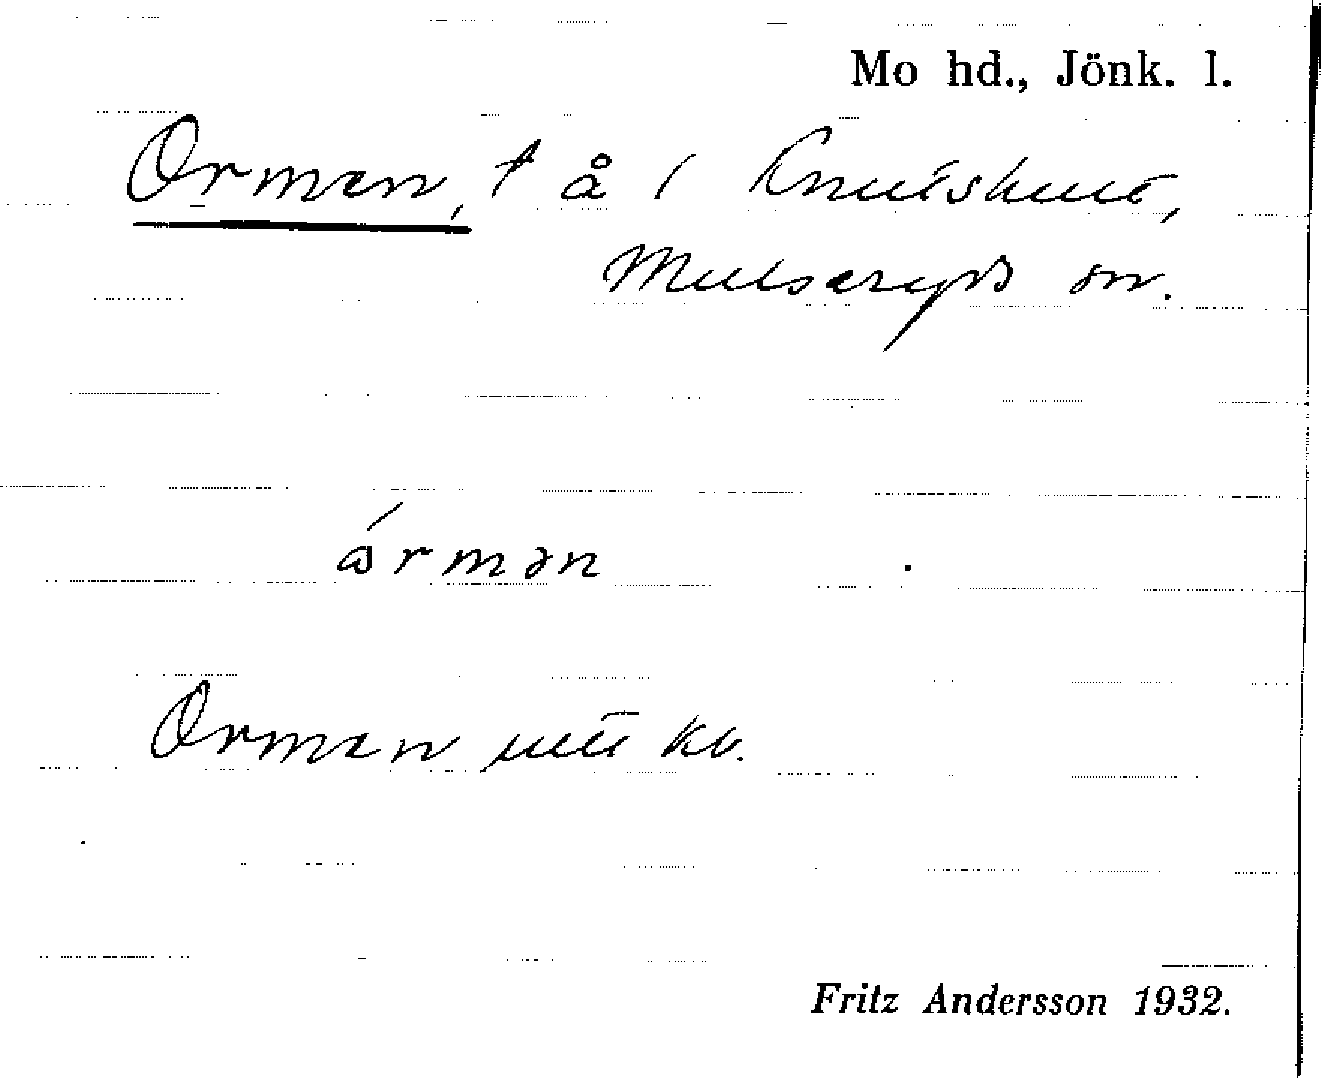 Mo hd., Jönk. l.
Orman, t å i Knutshult,
Mulseryds sn.
ármən
Orman kb.
Fritz Andersson 1932.